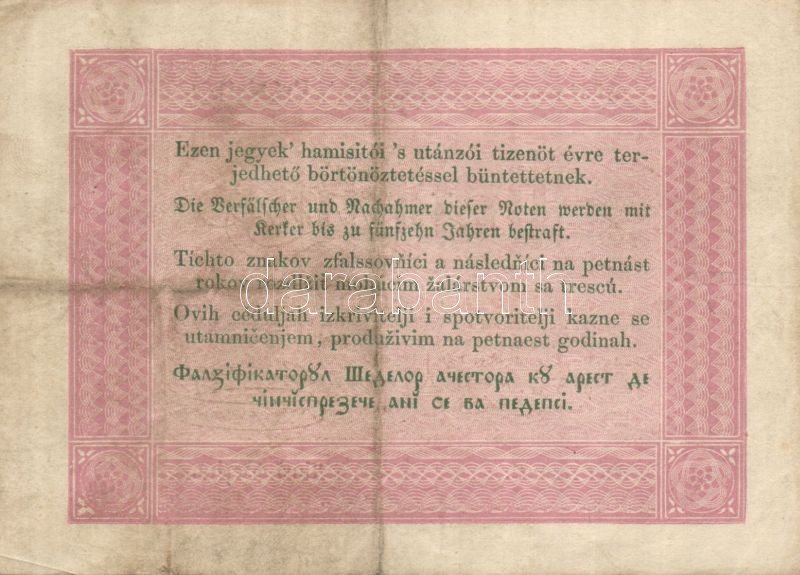 Ezen jegyek' hamisitói 's utánzói tizenöt évre ter-
jedhető börtönöztetéssel büntettetnek.
Die Verfälscher und Nachahmer dieser Noten werden mit
Kerker bis zu fünfzehn Jahren bestraft.
Tíchto znakov zfalssovňíci a následňíci na petnást
rokov žalárstvom sa trescú.
darabanth.com
Ovih ceduljah izkrivitelji i spotvoritelji kazne se
utamničenjem, produživim na petnaest godinah.
Фалзіфікаторꙋл Шеделор ачестора кꙋ арест де
чінчіспрезече ані се ва педепсі.